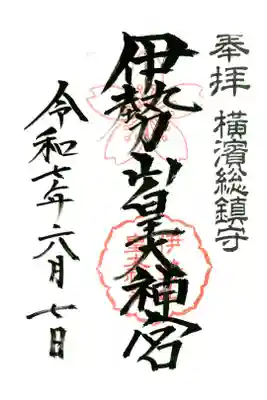 奉拝 横濱総鎮守
伊勢山皇大神宮
令和七年六月七日